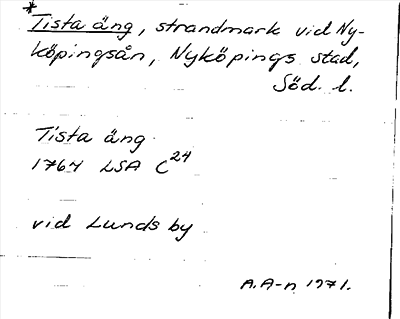 *
Tista äng, strandmark vid Ny-
köpingsån, Nyköpings stad,
Söd. l.
Tista äng
1764 LSA C24
vid Lunds by
A.A-n 1971.